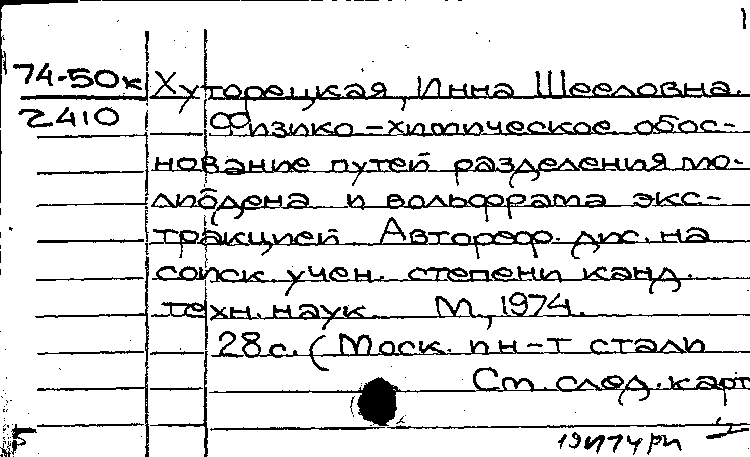 74-50к Хуторецкая, Инна Шееловна.
2410 Физико-химическое обос-
нование путей разделения мо-
либдена и вольфрама экс-
тракцией. Автореф. дис. на
соиск. учен. степени канд.
техн. наук. М., 1974.
28 с. (Моск. ин-т стали
См. след. карт